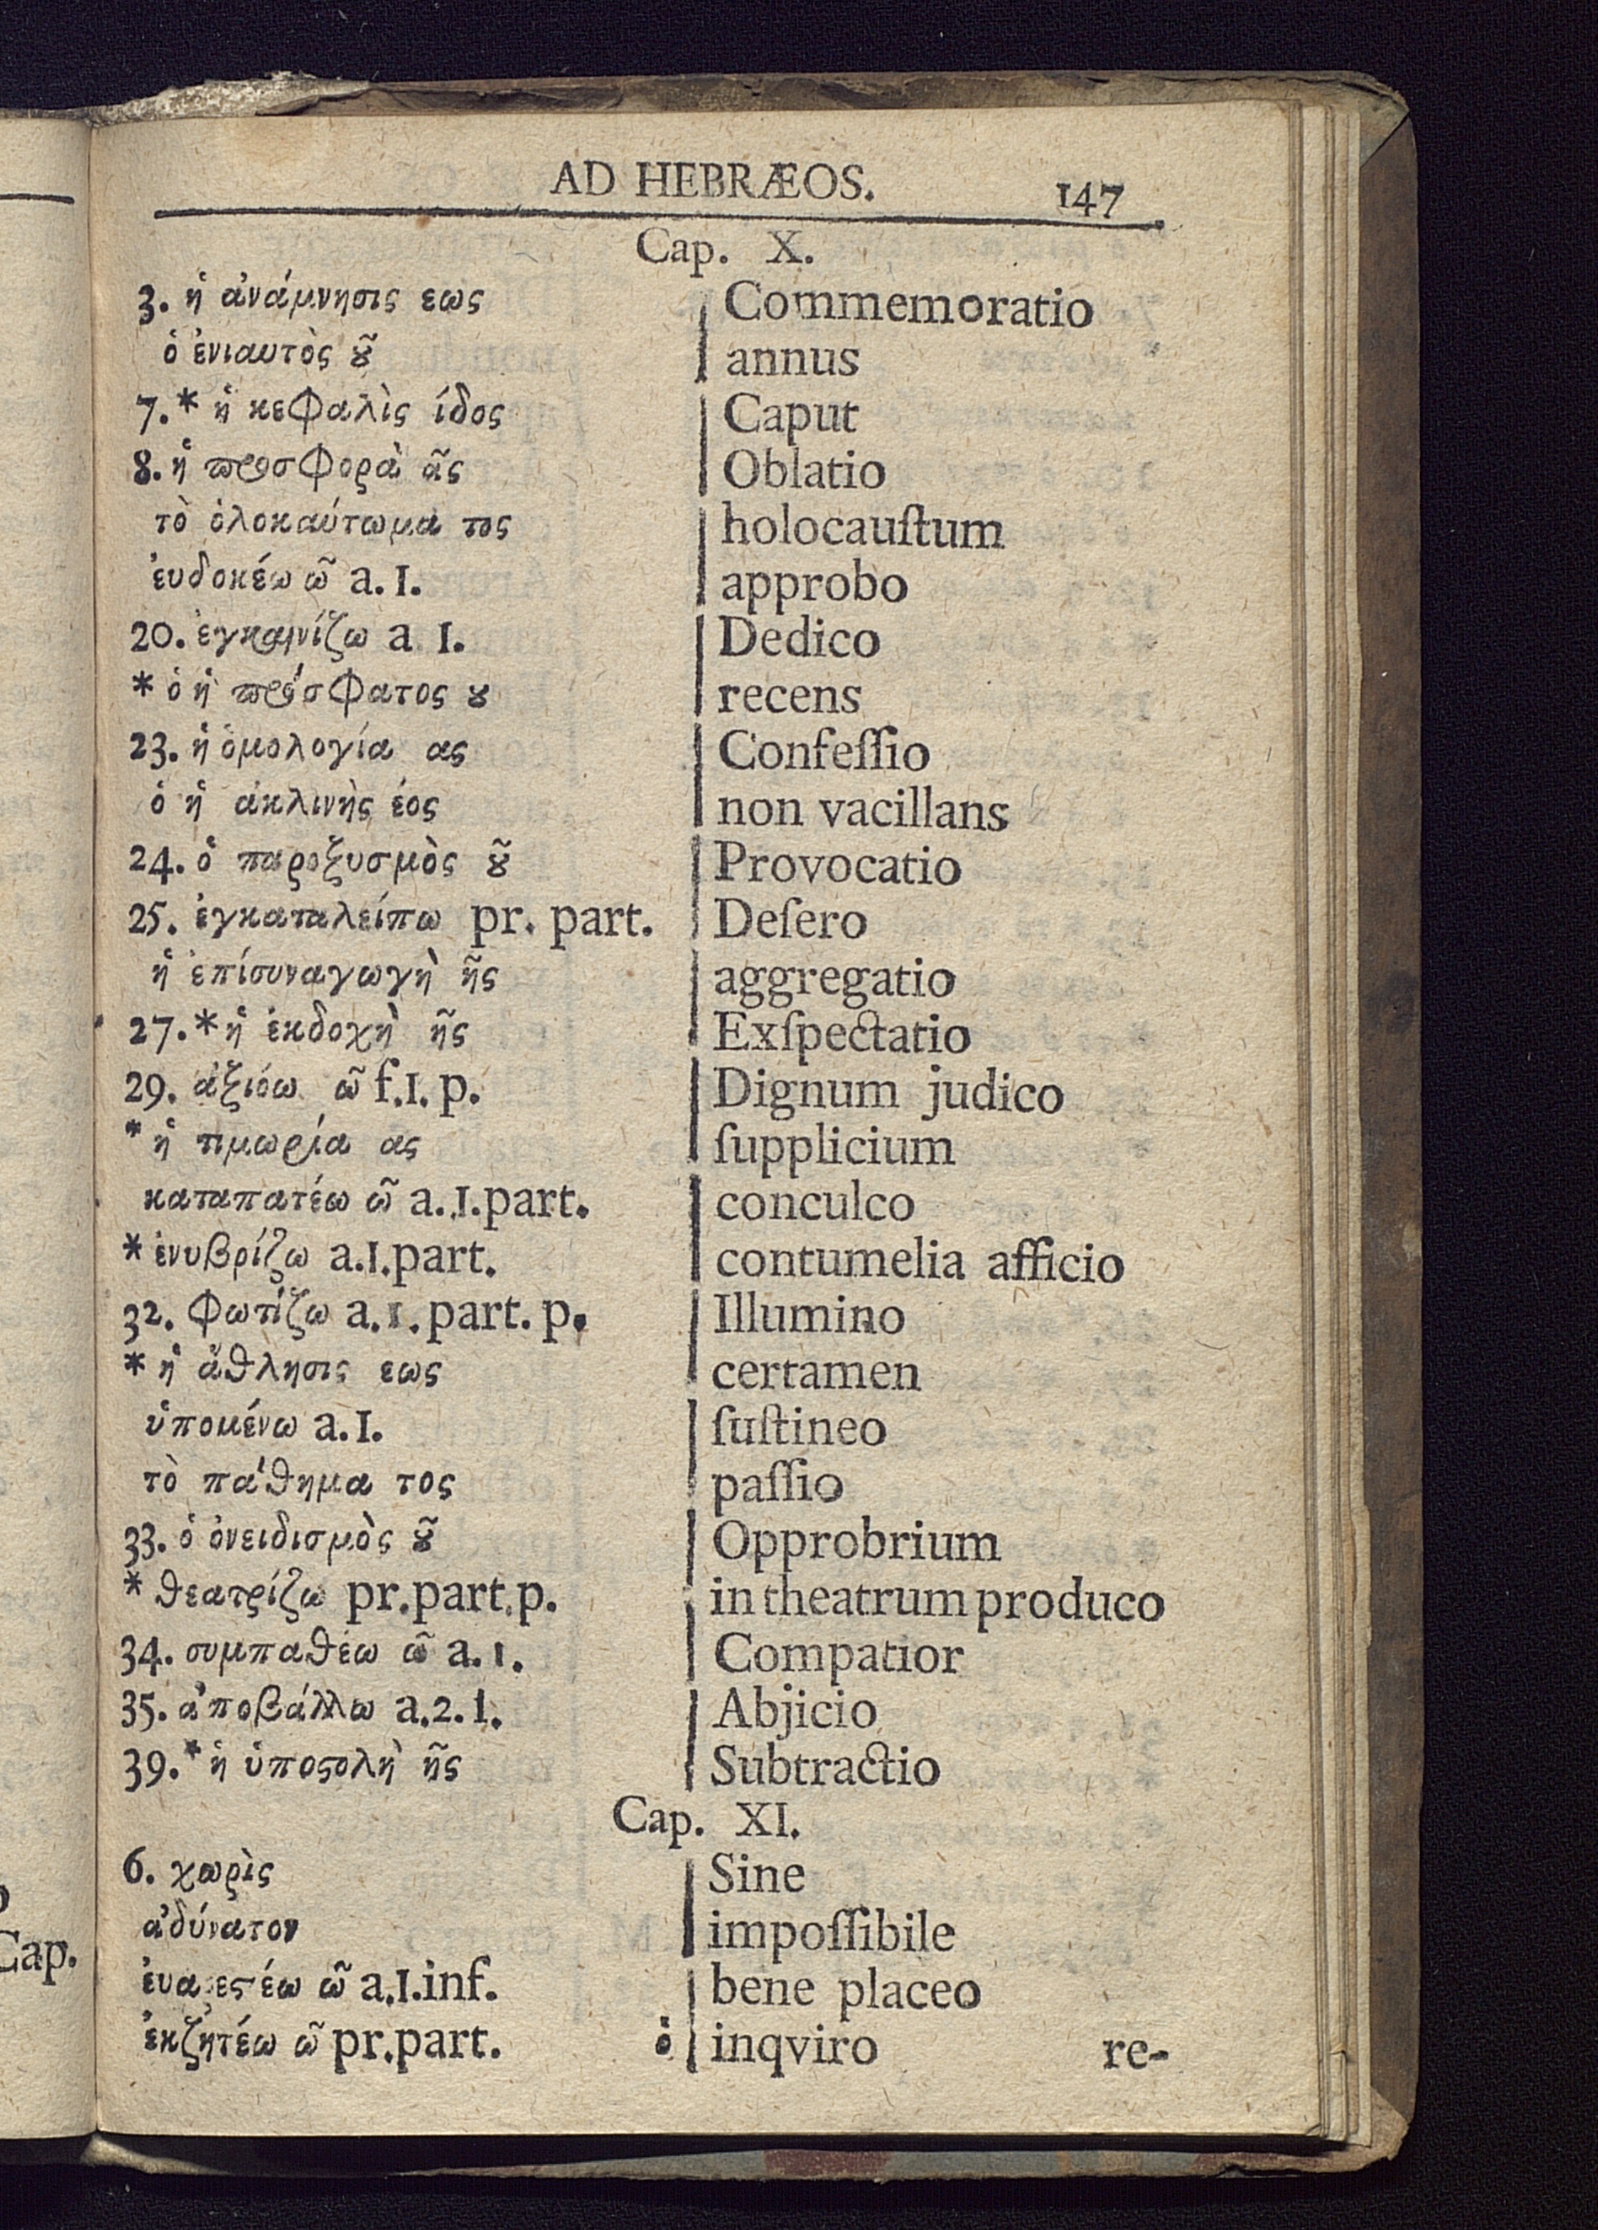 AD HEBRÆOS. 147
Cap. X.
3. ἡ ἀνάμνησις εως Commemoratio
ὁ ἐνιαυτὸς ȣ͂ annus
7.* ἡ κεφαλὶς ίδος Caput
8. ἡ προσφορὰ ᾶς Oblatio
τὸ ὁλοκαύτωμα τος holocauſtum
ἐυδοκέω ῶ a. I. approbo
20. ἐγκαινίζω a I. Dedico
* ὁ ἡ πρόσφατος ȣ recens
23. ἡ ὁμολογία ας Confeſſio
ὁ ἡ ἀκλινὴς έος non vacillans
24. ὁ παροξυσμὸς ȣ͂ Provocatio
25. ἐγκαταλείπω pr. part. Deſero
ἡ ἐπίσυναγωγὴ ῆς aggregatio
27.* ἡ ἐκδοχὴ ῆς Exſpectatio
29. ἀξιόω ῶ f.I. p. Dignum judico
* ἡ τιμωρία ας ſupplicium
καταπατέω ῶ a.I.part. conculco
* ἐνυβρίζω a.I.part. contumelia afficio
32. φωτίζω a.I.part. p. Illumino
* ἡ ἄθλησις εως certamen
ὑπομένω a.I. ſuſtineo
τὸ πάθημα τος paſſio
33. ὁ ὀνειδισμὸς ȣ͂ Opprobrium
* θεατρίζω pr.part.p. in theatrum produco
34. συμπαθέω ῶ a. I. Compatior
35. ἀποβάλλω a.2.I. Abjicio
39.* ἡ ὑποϛολὴ ῆς Subtractio
Cap. XI.
6. χωρὶς Sine
ἀδύνατον impoſſibile
ἐυαρεϛέω ῶ a.I.inf. bene placeo
ἐκζητέω ῶ pr.part. inqviro
ὁ re-
Cap.